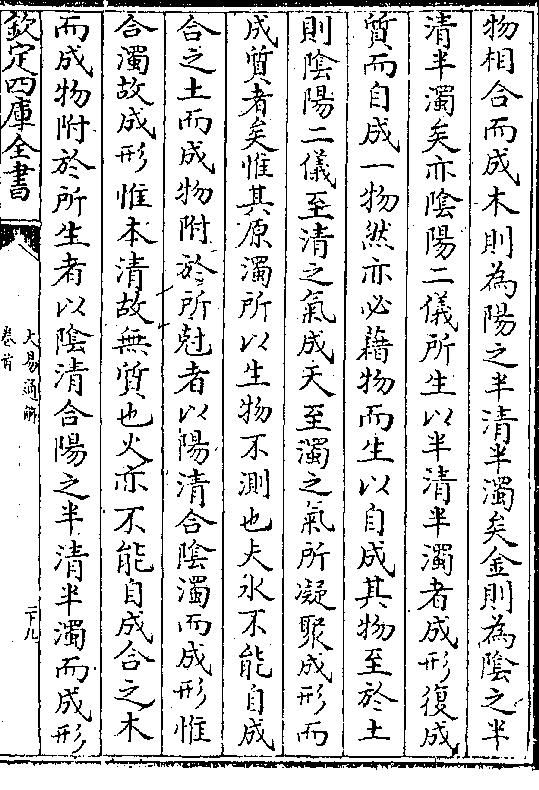 物相合而成木則為陽之半清半濁矣金則為陰之半
清半濁矣亦陰陽二儀所生以半清半濁者成形復成
質而自成一物然亦必藉物而生以自成其物至於土
則陰陽二儀至清之氣成天至濁之氣所凝聚成形而
成質者矣惟其原濁所以生物不測也夫水不能自成
合之土而成物附於所尅者以陽清合陰濁而成形惟
合濁故成形惟本清故無質也火亦不能自成合之木
而成物附於所生者以陰清合陽之半清半濁而成形
欽定四庫全書
大易通解
卷首